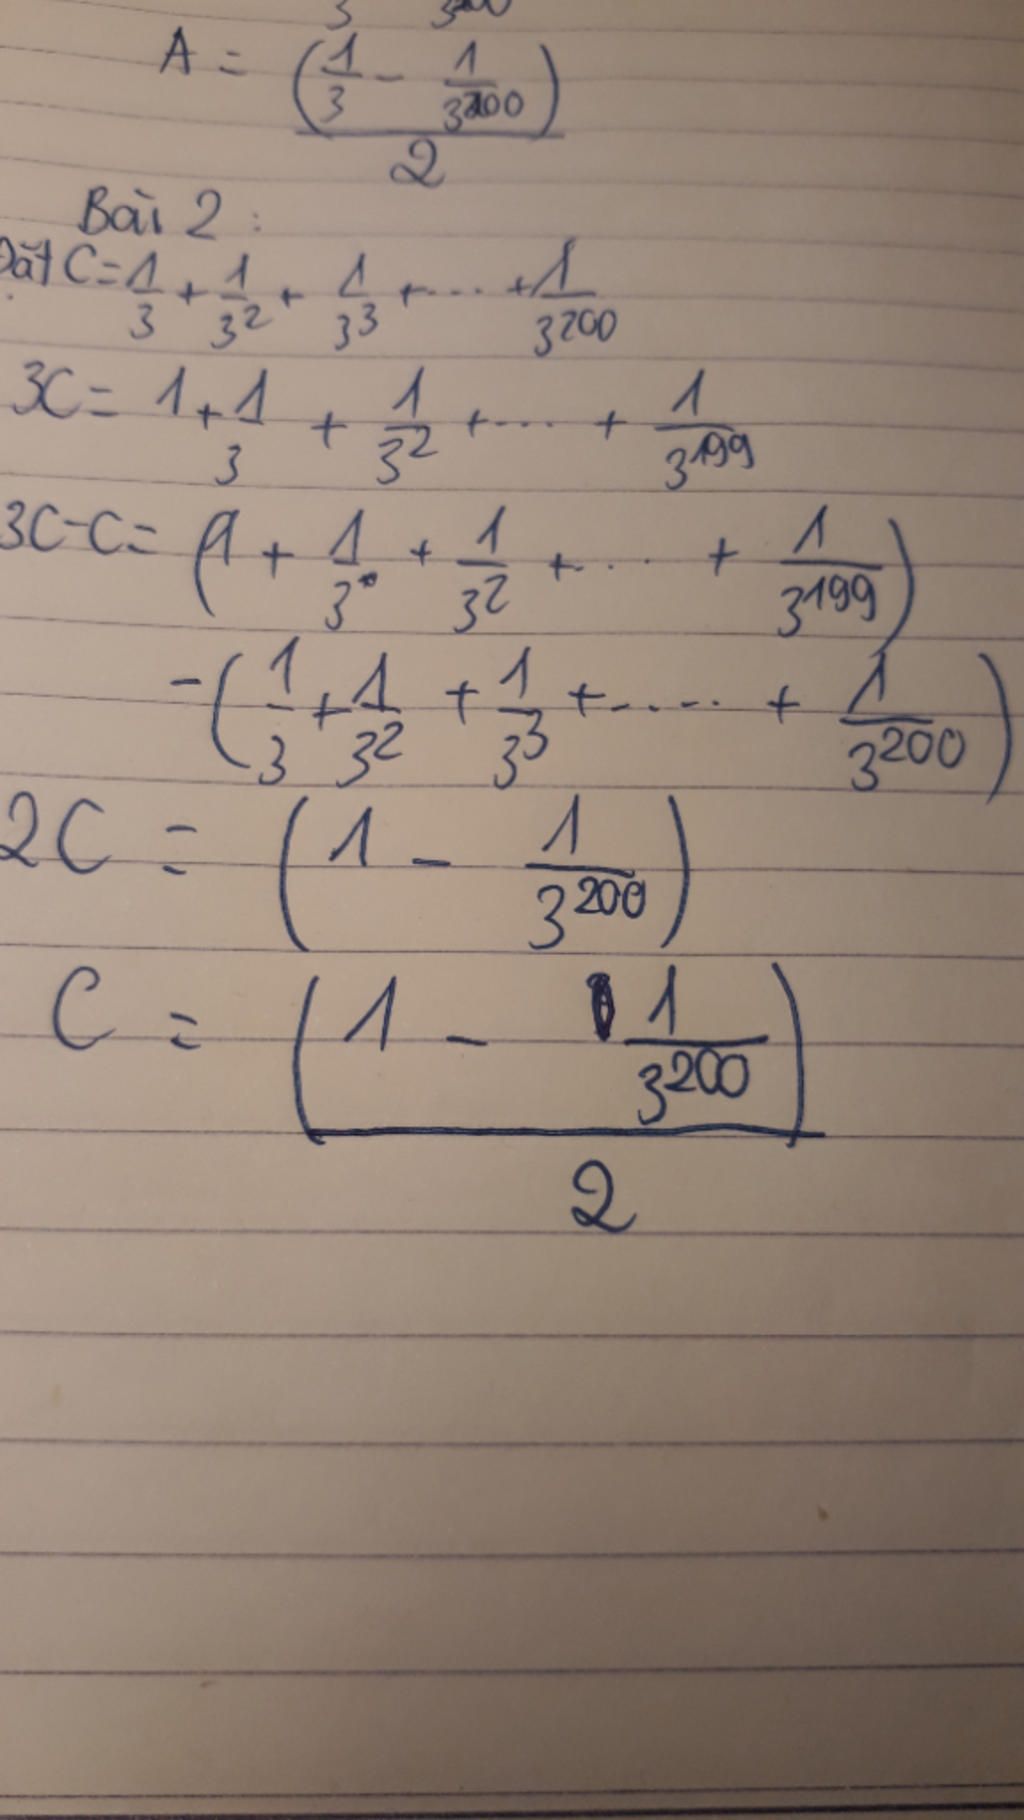 A = (1/3 - 1/3^200) / 2
Bài 2 :
Đặt C = 1/3 + 1/3^2 + 1/3^3 + .... + 1/3^200
3C = 1 + 1/3 + 1/3^2 + .... + 1/3^199
3C - C = (1 + 1/3 + 1/3^2 + .... + 1/3^199)
- (1/3 + 1/3^2 + 1/3^3 + ..... + 1/3^200)
2C = (1 - 1/3^200)
C = (1 - 1/3^200) / 2